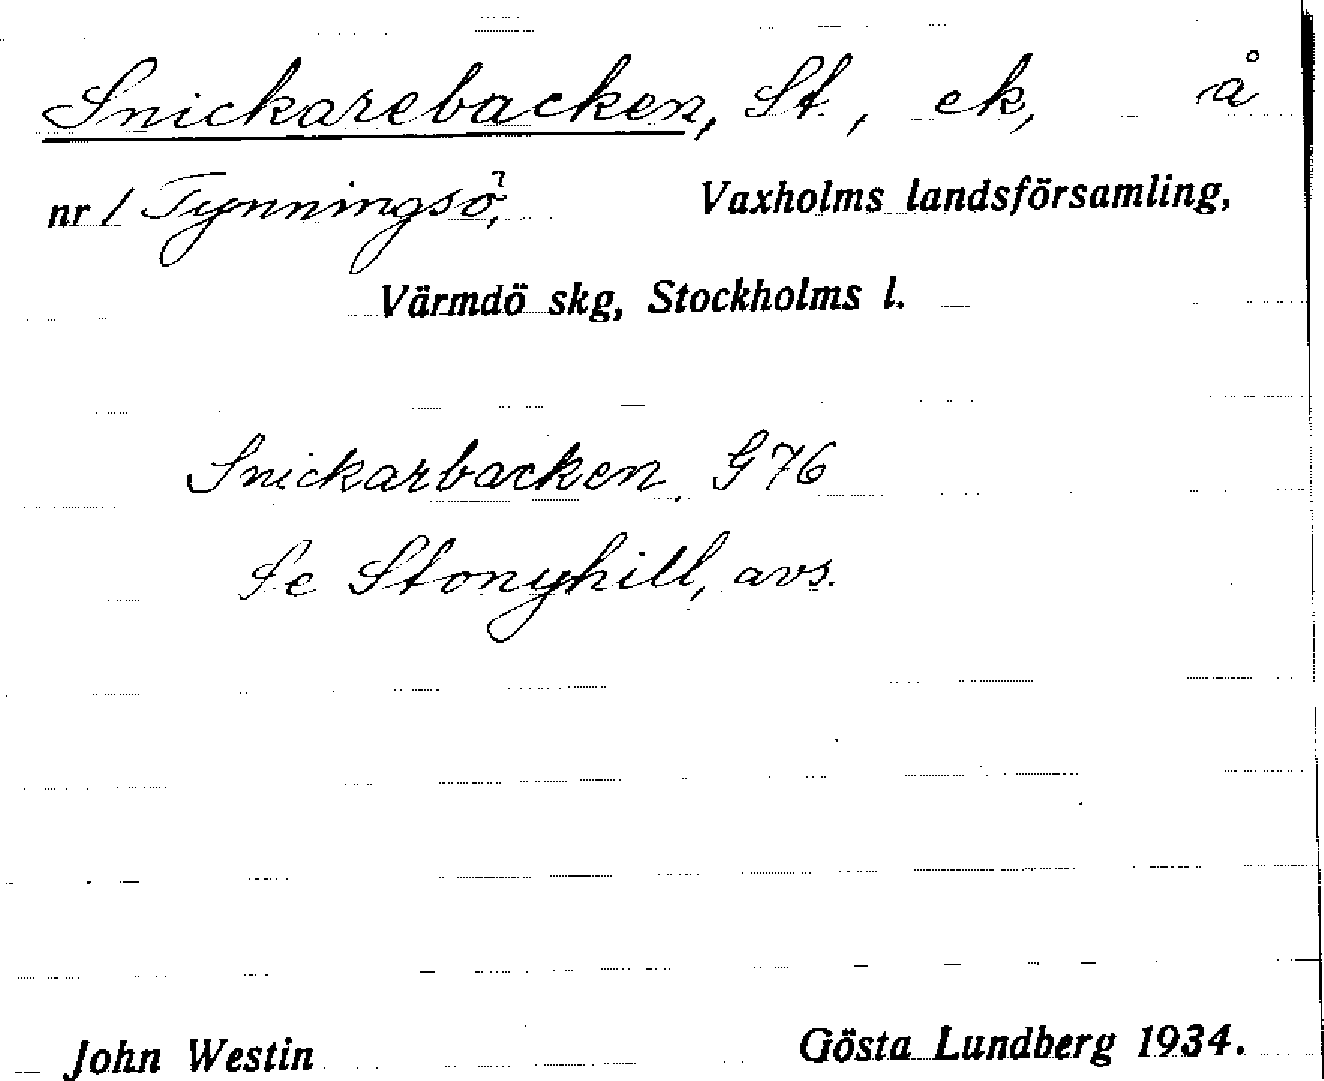 Snickarebacken, St., ek, å
nr 1 Tynningsö, Vaxholms landsförsamling,
Värmdö skg, Stockholms l.
Snickarbacken G76
Se Stonyhill, avs.
John Westin Gösta Lundberg 1934.